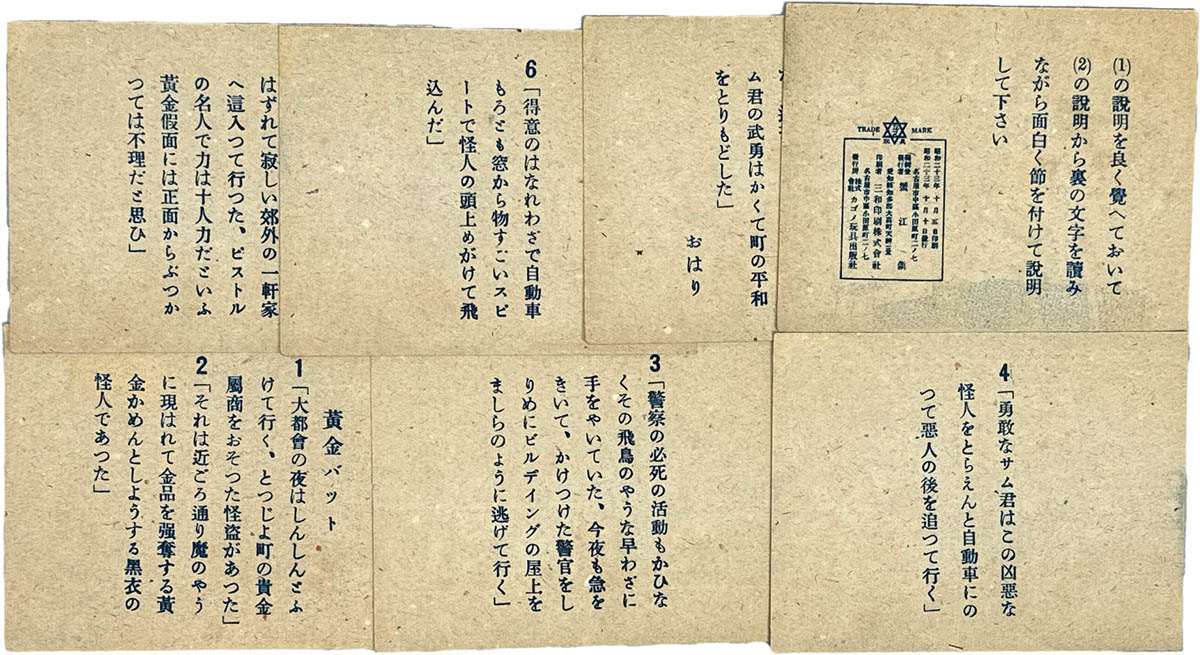 (1)の說明を良く覺へておいて
(2)の說明から裏の文字を讀み
ながら面白く節を付けて說明
して下さい
TRADE MARK
昭和二十三年 十月五日印刷
昭和二十三年 十月十日發行
名古屋市中區小田原町二ノ七
編輯兼發行者 蟹江
愛知縣知多郡大高町天神
印刷者 三和印刷株式會社
名古屋市中區小田原町二ノ七
發行所 株式會社 カゴノ玩具出版社
ム君の武勇はかくて町の平和
をとりもどした」
おはり
6「得意のはなれわざで自動車
もろとも窓から物すごいスピ
ートで怪人の頭上めがけて飛
込んだ」
はずれて寂しい郊外の一軒家
へ這入つて行つた、ピストル
の名人で力は十人力だといふ
黃金假面には正面からぶつか
つては不理だと思ひ」
4「勇敢なサム君はこの凶悪な
怪人をとらえんと自動車にの
つて惡人の後を追つて行く」
3「警察の必死の活動もかひな
くその飛鳥のやうな早わざに
手をやいていた、今夜も急を
きいて、かけつけた警官をし
りめにビルデイングの屋上を
ましらのように逃げて行く」
黃金バット
1「大都會の夜はしんしんとふ
けて行く、とつじよ町の貴金
屬商をおそつた怪盜があつた」
2「それは近ごろ通り魔のやう
に現はれて金品を强奪する黃
金かめんとしようする黑衣の
怪人であつた」